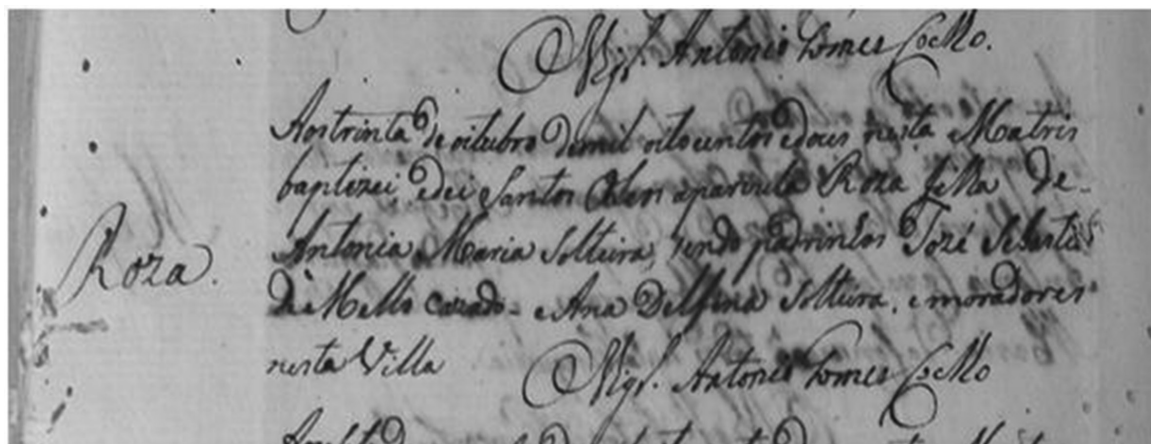 Vigr. Antonio Gomes Coelho.
Aos trinta de oitubro de mil oitocentos e dous nesta Matris
baptizei, e dei Santos Oleos a parvula Roza filha de
Antonia Maria Solteira, sendo padrinhos Jozé Sebastião
Roza.
de Mello cazado e Ana Delfina Solteira, e moradores
nesta Villa
Vigr. Antonio Gomes Coelho